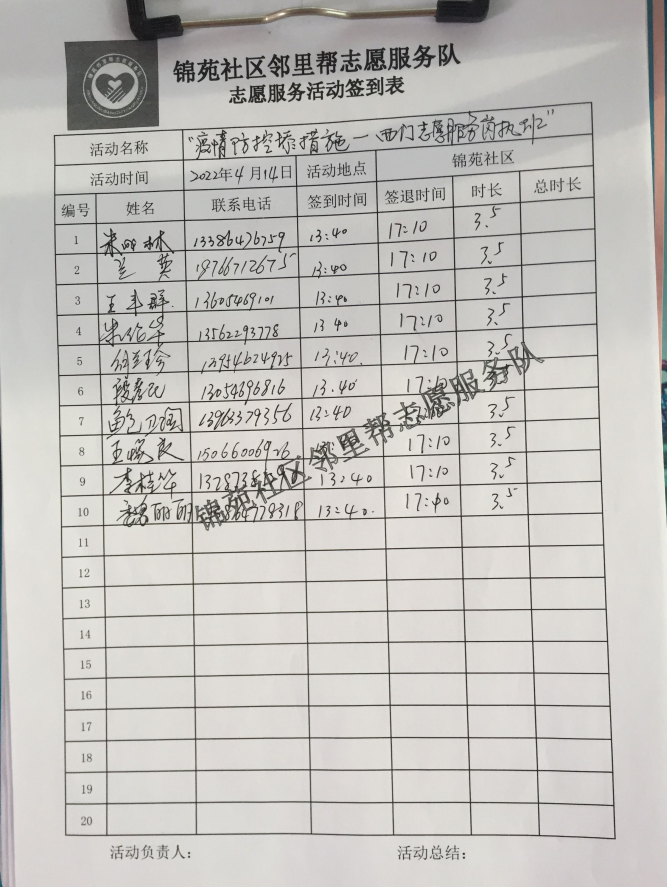 锦苑社区邻里帮志愿服务队
志愿服务活动签到表
活动名称 "疫情防控 措施一西门志愿服务岗执班"
活动时间 2022年4月14日 活动地点 锦苑社区
编号 姓名 联系电话 签到时间 签退时间 时长 总时长
1 朱 林 13386476759 13:40 17:10 3.5
2 兰英 13:40 17:10 3.5
3 王 群 13605469101 13:40 17:10 3.5
4 朱 华 13562293778 13 40 17:10 3.5
5 珍 13954624925 13:40. 17:10 3.5
6 13054696816 13.40 17:10 3.5
7 鲍卫国 13963379356 13:40 3.5
8 王 良 15066006926 17:10 3.5
9 李桂华 13:40 17:10 3.5
10 丽丽 13:40. 17:10 3.5
11
12
13
14
15
16
17
18
19
20
锦苑社区邻里帮志愿服务队
活动负责人: 活动总结: